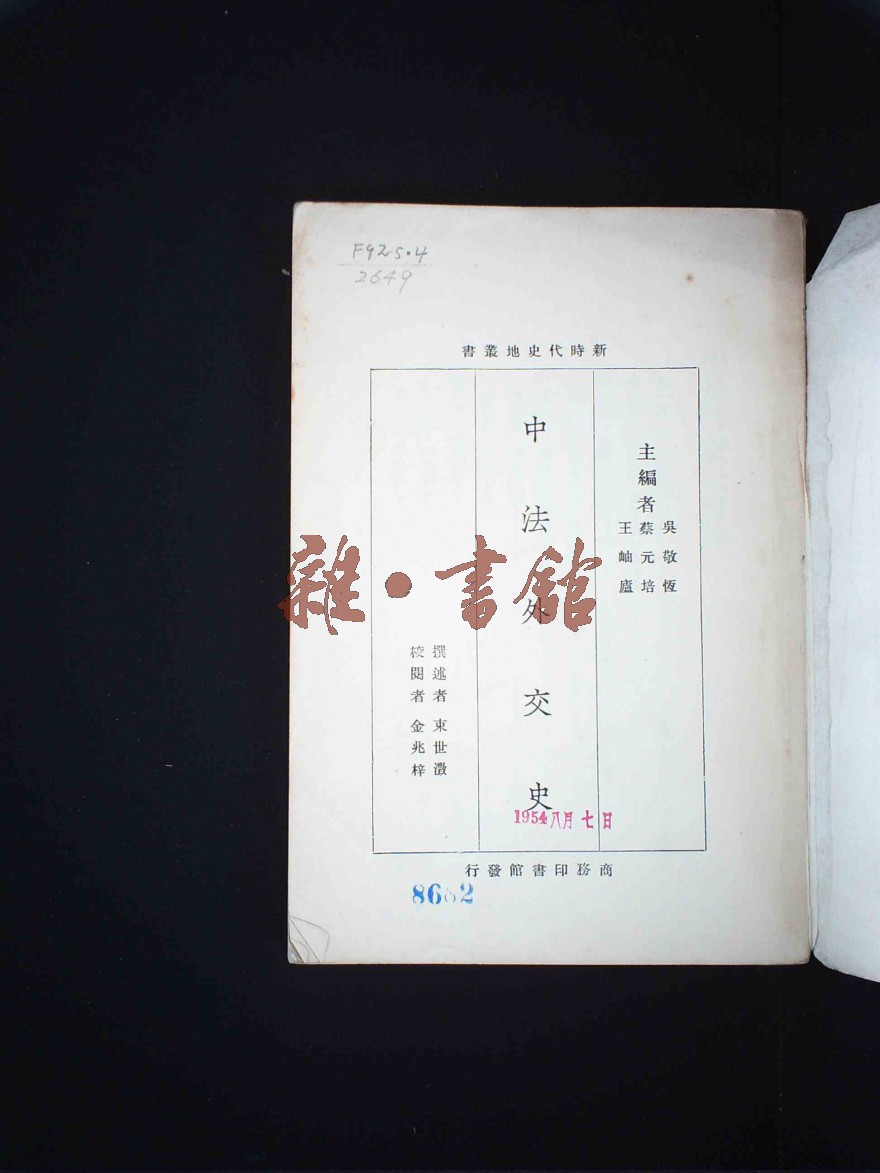 F925.4
2649
新時代史地叢書
主編者
吳敬恆
蔡元培
王岫廬
中法外交史
撰述者 束世澂
校閱者 金兆梓
1954 八月 七 日
商務印書館發行
雜·書館